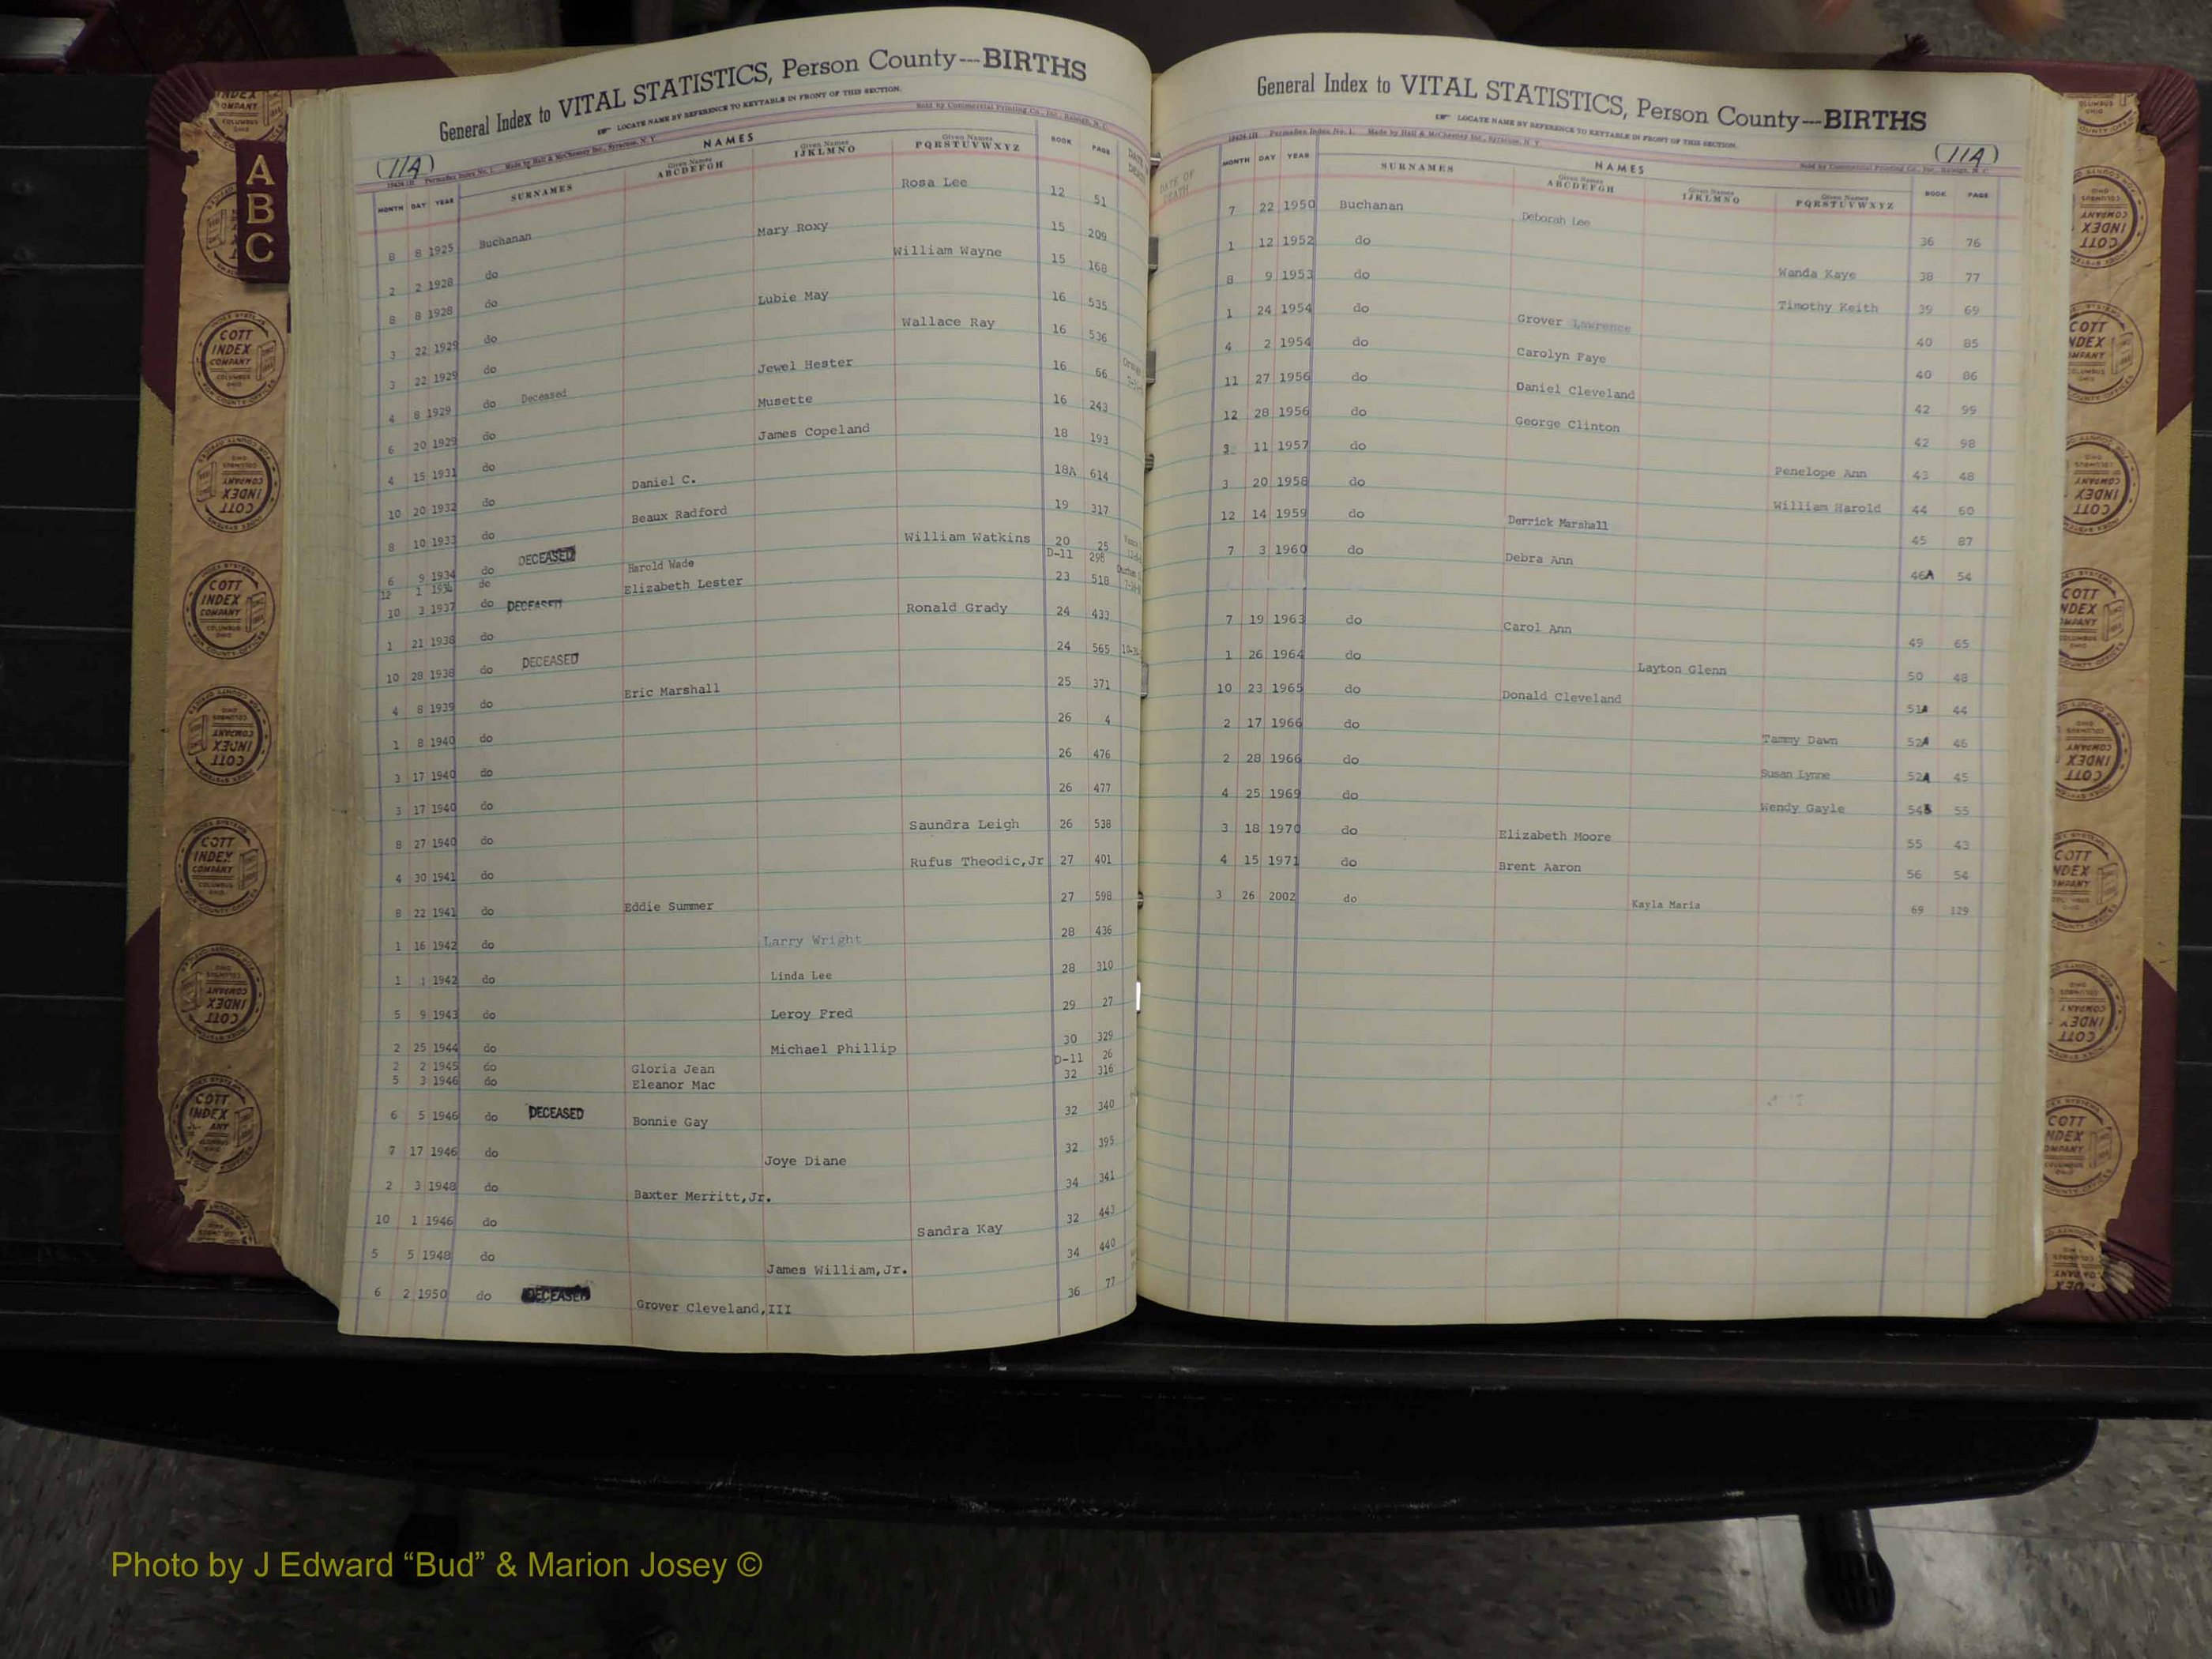 General Index to VITAL STATISTICS, Person County---BIRTHS
LOCATE NAME BY REFERENCE TO KEYTABLE IN FRONT OF THIS SECTION.
(11A)
Made by Hall & McChesney Inc., Syracuse, N. Y.
Sold by Commercial Printing Co., Inc., Raleigh, N. C.
MONTH DAY YEAR SURNAMES NAMES Given Names ABCDEFGH Given Names IJKLMNO Given Names PQRSTUVWXYZ BOOK PAGE
8 8 1925 Buchanan Rosa Lee 12 51
2 2 1928 do Mary Roxy 15 209
8 8 1928 do William Wayne 15 168
3 22 1929 do Lubie May 16 535
3 22 1929 do Wallace Ray 16 536
4 8 1929 do Deceased Jewel Hester 16 66
6 20 1929 do Musette 16 243
4 15 1931 do James Copeland 18 193
10 20 1932 do Daniel C. 18A 614
8 10 1933 do Beaux Radford 19 317
6 9 1934 do DECEASED William Watkins 20 25
12 1 1934 do Harold Wade D-11 298
10 3 1937 do DECEASED Elizabeth Lester 23 518
1 21 1938 do Ronald Grady 24 433
10 28 1938 do DECEASED 24 565
4 8 1939 do Eric Marshall 25 371
1 8 1940 do 26 4
3 17 1940 do 26 476
3 17 1940 do 26 477
8 27 1940 do Saundra Leigh 26 538
4 30 1941 do Rufus Theodic,Jr 27 401
8 22 1941 do Eddie Summer 27 598
1 16 1942 do Larry Wright 28 436
1 1 1942 do Linda Lee 28 310
5 9 1943 do Leroy Fred 29 27
2 25 1944 do Michael Phillip 30 329
2 2 1945 do Gloria Jean D-11 26
5 3 1946 do Eleanor Mac 32 316
6 5 1946 do DECEASED Bonnie Gay 32 340
7 17 1946 do Joye Diane 32 395
2 3 1948 do Baxter Merritt,Jr. 34 341
10 1 1946 do Sandra Kay 32 443
5 5 1948 do James William,Jr. 34 440
6 2 1950 do DECEASED Grover Cleveland,III 36 77
General Index to VITAL STATISTICS, Person County---BIRTHS
LOCATE NAME BY REFERENCE TO KEYTABLE IN FRONT OF THIS SECTION.
(11A)
Made by Hall & McChesney Inc., Syracuse, N. Y.
Sold by Commercial Printing Co., Inc., Raleigh, N. C.
DATE OF DEATH
MONTH DAY YEAR SURNAMES NAMES Given Names ABCDEFGH Given Names IJKLMNO Given Names PQRSTUVWXYZ BOOK PAGE
7 22 1950 Buchanan Deborah Lee 36 76
1 12 1952 do Wanda Kaye 38 77
8 9 1953 do Timothy Keith 39 69
1 24 1954 do Grover Lawrence 40 85
4 2 1954 do Carolyn Faye 40 86
11 27 1956 do Daniel Cleveland 42 99
12 28 1956 do George Clinton 42 98
3 11 1957 do Penelope Ann 43 48
3 20 1958 do William Harold 44 60
12 14 1959 do Derrick Marshall 45 87
7 3 1960 do Debra Ann 46A 54
7 19 1963 do Carol Ann 49 65
1 26 1964 do Layton Glenn 50 48
10 23 1965 do Donald Cleveland 51A 44
2 17 1966 do Tammy Dawn 52A 46
2 28 1966 do Susan Lynne 52A 45
4 25 1969 do Wendy Gayle 54B 55
3 18 1970 do Elizabeth Moore 55 43
4 15 1971 do Brent Aaron 56 54
3 26 2002 do Kayla Maria 69 129
A
B
C
COTT
INDEX
COMPANY
COLUMBUS
OHIO
Photo by J Edward “Bud” & Marion Josey ©